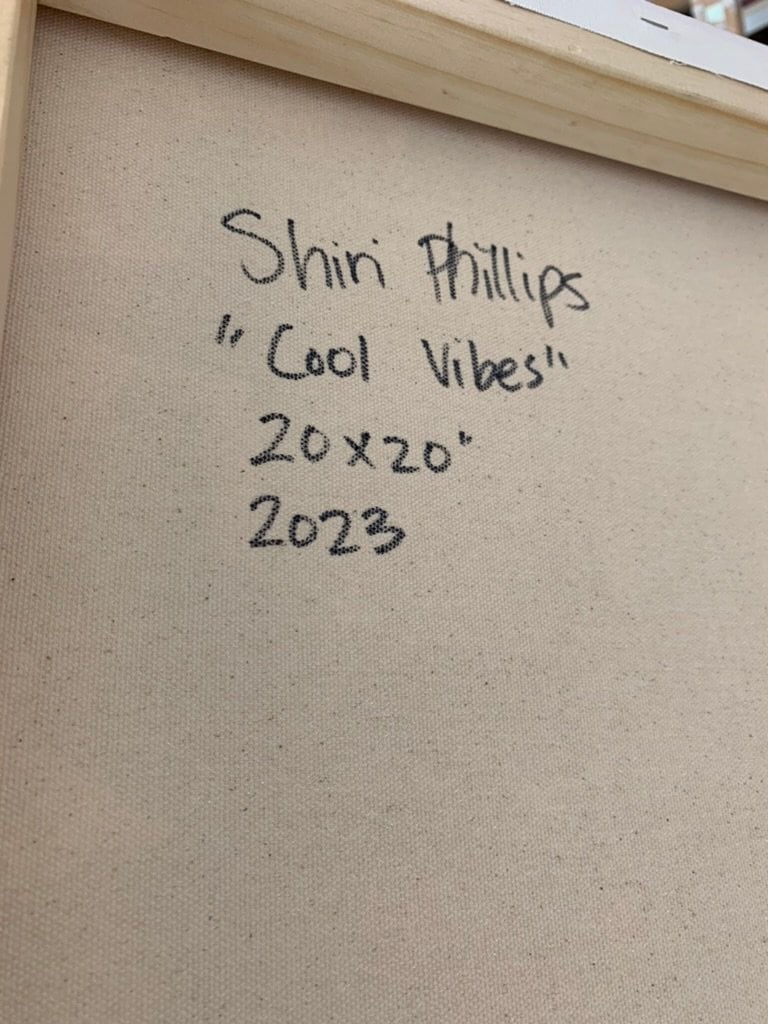 Shiri Phillips
"Cool Vibes"
20x20"
2023